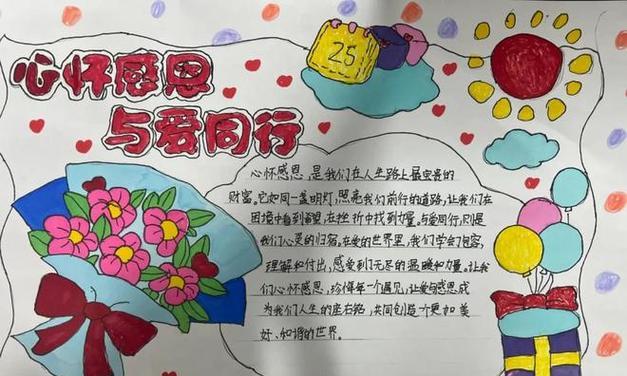 心怀感恩
与爱同行
25
心怀感恩,是我们在人生路上最宝贵的
财富。它如同一盏明灯,照亮我们前行的道路,让我们在
困境中看到希望,在挫折中找到力量。与爱同行,则是
我们心灵的归宿,在爱的世界里,我们学会了包容,
理解和付出,感受到了无尽的温暖和力量。让我
们心怀感恩,珍惜每一个遇见,让爱与感恩成
为我们人生的座右铭,共同创造一个更加美
好、和谐的世界。